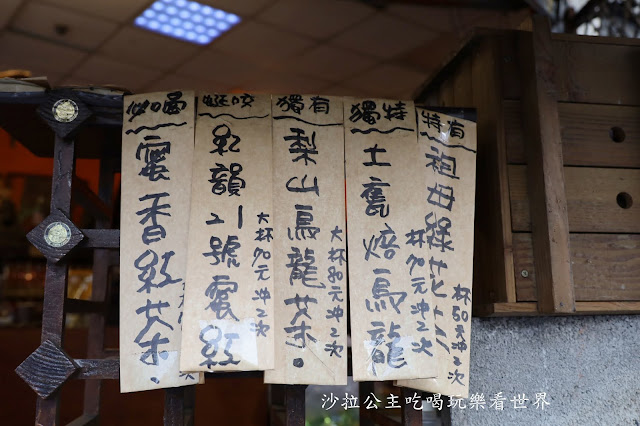 必喝
蜜香紅茶.
大
必喝
紅韻21號蜜紅
大杯90元冲2次
獨有
梨山烏龍茶.
大杯80元冲2次
獨特
土窯焙烏龍
杯90元冲2次
特有
祖母綠花
杯50元冲2次
沙拉公主吃喝玩樂看世界